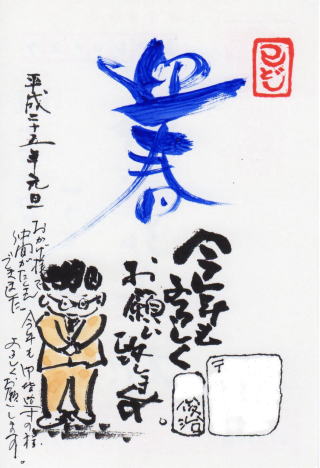 迎春
今年も
よろしく
お願い致します。
俊治
〒
平成二十五年 元旦
おかげ様で
仲間がたくさん
できました
今年も
よろしくお願いします。